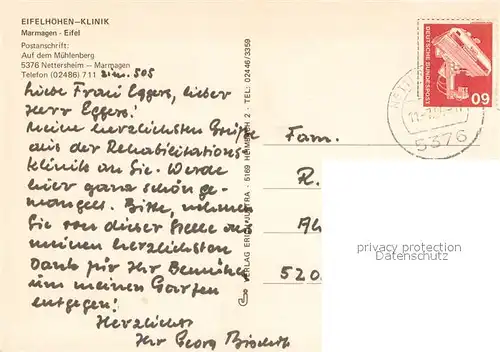 EIFELHÖHEN-KLINIK
Marmagen - Eifel
Postanschrift:
Auf dem Mühlenberg
5376 Nettersheim - Marmagen
Telefon (02486) 711 Zim. 505
Liebe Frau Eggers, lieber
Herr Eggers!
Meine herzlichsten Grüße
aus der Rehabilitations-
klinik an Sie. Werde
hier ganz schön ge-
mangelt. Bitte, nehmen
Sie von dieser Stelle aus
meinen herzlichsten
Dank für Ihr Bemühen
um meinen Garten
entgegen!
Herzlichst
Ihr Georg
VERLAG ERICH JUSTRA - 5169 HEIMBACH 2 - TEL: 02446/3359
DEUTSCHE BUNDESPOST
60
5376
Fam.
R.
Ah
520
privacy protection
Datenschutz